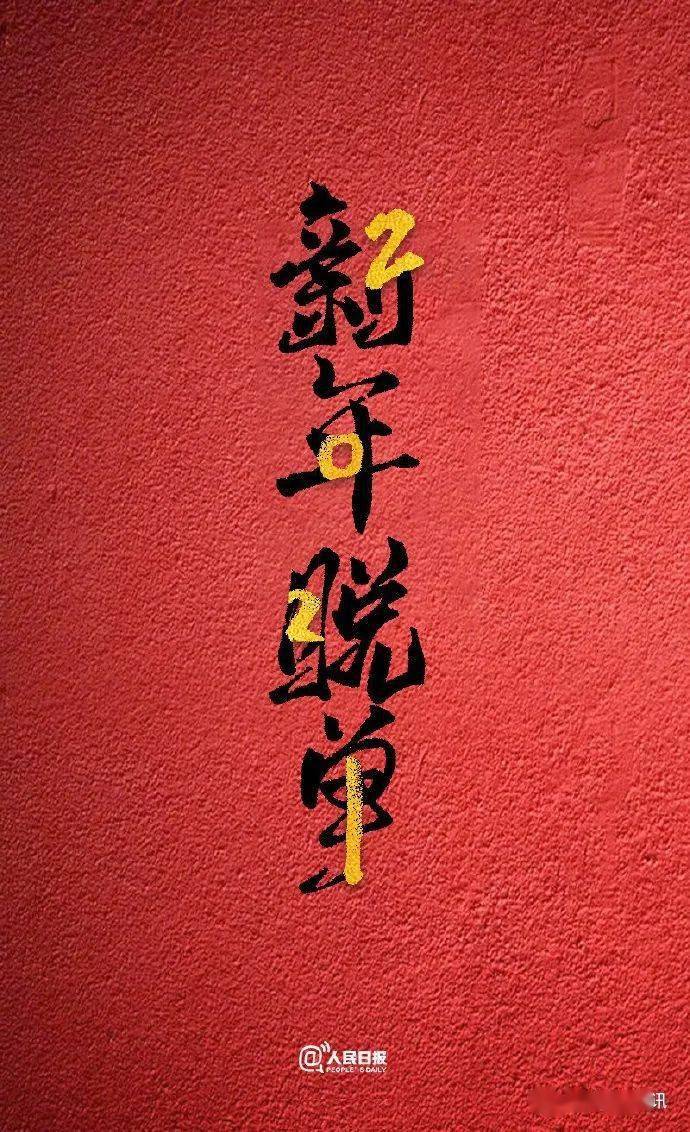 新年脱单
@人民日报
PEOPLE'S DAILY
讯